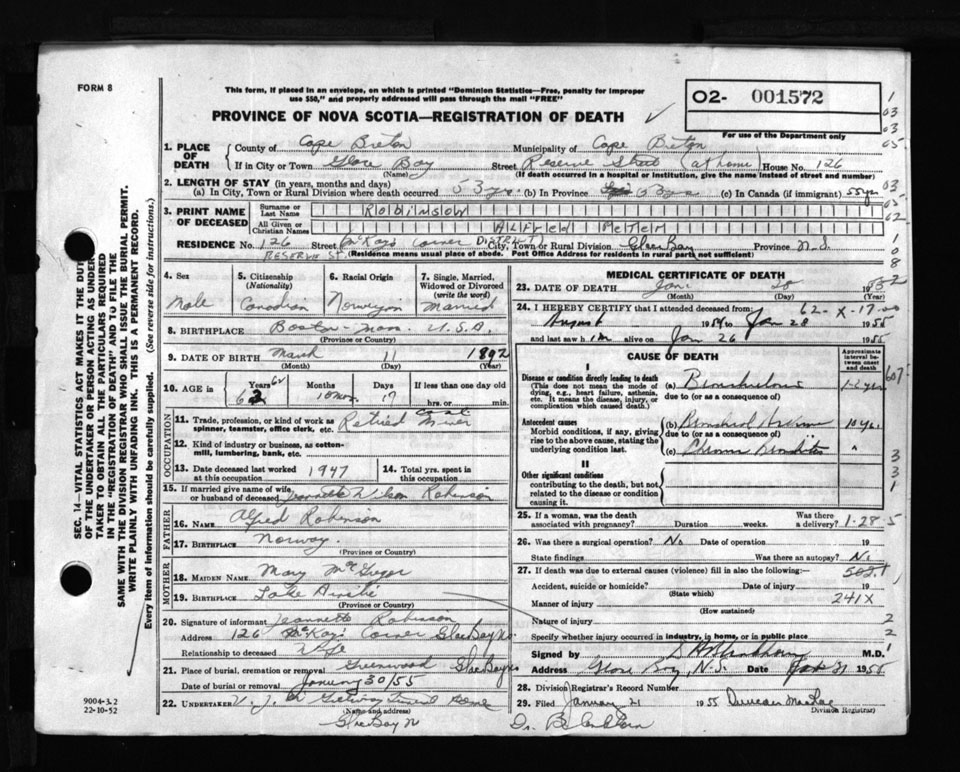 FORM 8
This form, if placed in an envelope, on which is printed "Dominion Statistics—Free, penalty for improper
use $50," and properly addressed will pass through the mail "FREE"
PROVINCE OF NOVA SCOTIA—REGISTRATION OF DEATH
O2- 001572
For use of the Department only
1. PLACE OF DEATH
County of Cape Breton Municipality of Cape Breton
If in City or Town Glace Bay Street Reserve Street (at home) House No. 126
(Name) (If death occurred in a hospital or institution, give the name instead of street and number)
2. LENGTH OF STAY (in years, months and days)
(a) In City, Town or Rural Division where death occurred 53 yrs. (b) In Province (c) In Canada (if immigrant) 55 yrs
3. PRINT NAME OF DECEASED
Surname or Last Name ROBINSON
All Given or Christian Names ALFRED PETER
RESIDENCE No. 126 Street McKays Corner DISTRICT City, Town or Rural Division Glace Bay Province N.S.
RESERVE ST. (Residence means usual place of abode. Post Office Address for residents in rural parts not sufficient)
4. Sex Male
5. Citizenship (Nationality) Canadian
6. Racial Origin Norwegian
7. Single, Married, Widowed or Divorced (write the word) Married
8. BIRTHPLACE Boston - Mass. U.S.A.
(Province or Country)
9. DATE OF BIRTH March 11 1892
(Month) (Day) (Year)
10. AGE in Years 62 Months 10 mos. Days 17 If less than one day old
hrs. or min.
OCCUPATION
11. Trade, profession, or kind of work as spinner, teamster, office clerk, etc. Retired Coal Miner
12. Kind of industry or business, as cotton-mill, lumbering, bank, etc.
13. Date deceased last worked at this occupation 1947
14. Total yrs. spent in this occupation
15. If married give name of wife or husband of deceased Jeannette Wilson Robinson
FATHER
16. NAME Alfred Robinson
17. BIRTHPLACE Norway.
(Province or Country)
MOTHER
18. MAIDEN NAME Mary
19. BIRTHPLACE Lake Ainslie
(Province or Country)
20. Signature of informant Jeannette Robinson
Address 126 McKays Corner Glace Bay N.S.
Relationship to deceased Wife
21. Place of burial, cremation or removal Greenwood Glace Bay N.S
Date of burial or removal January 30/55
22. UNDERTAKER Funeral Home
(Name and address)
Glace Bay N
MEDICAL CERTIFICATE OF DEATH
23. DATE OF DEATH Jan. 28
(Month) (Day) (Year)
24. I HEREBY CERTIFY that I attended deceased from: 62-X-17
August 1954 to Jan 28 1955
and last saw him alive on Jan 26 1955
CAUSE OF DEATH
Approximate interval between onset and death
I
Disease or condition directly leading to death
(This does not mean the mode of dying, e.g., heart failure, asthenia, etc. It means the disease, injury, or complication which caused death.)
(a)
due to (or as a consequence of)
Antecedent causes
Morbid conditions, if any, giving rise to the above cause, stating the underlying condition last.
(b) Bronchial Asthma 10 yrs.
due to (or as a consequence of)
(c) Chronic Bronchitis "
II
Other significant conditions
contributing to the death, but not related to the disease or condition causing it.
25. If a woman, was the death associated with pregnancy? Duration weeks. Was there a delivery? 1-28-5
26. Was there a surgical operation? No Date of operation 19
State findings Was there an autopsy? No
27. If death was due to external causes (violence) fill in also the following:-
Accident, suicide or homicide? Date of injury 19
(State which)
Manner of injury 241X
(How sustained)
Nature of injury
Specify whether injury occurred in industry, in home, or in public place
Signed by M.D.
Address Glace Bay, N.S. Date 1955
28. Division Registrar's Record Number
29. Filed January 1955 Duncan MacRae
Division Registrar)
SEC. 14—VITAL STATISTICS ACT MAKES IT THE DUTY
OF THE UNDERTAKER OR PERSON ACTING AS UNDER-
TAKER TO OBTAIN ALL THE PARTICULARS REQUIRED
IN THE "REGISTRATION OF DEATH" AND TO FILE THE
SAME WITH THE DIVISION REGISTRAR WHO SHALL ISSUE THE BURIAL PERMIT.
WRITE PLAINLY WITH UNFADING INK. THIS IS A PERMANENT RECORD.
Every item of information should be carefully supplied. (See reverse side for instructions.)
9004-3.2
22-10-52